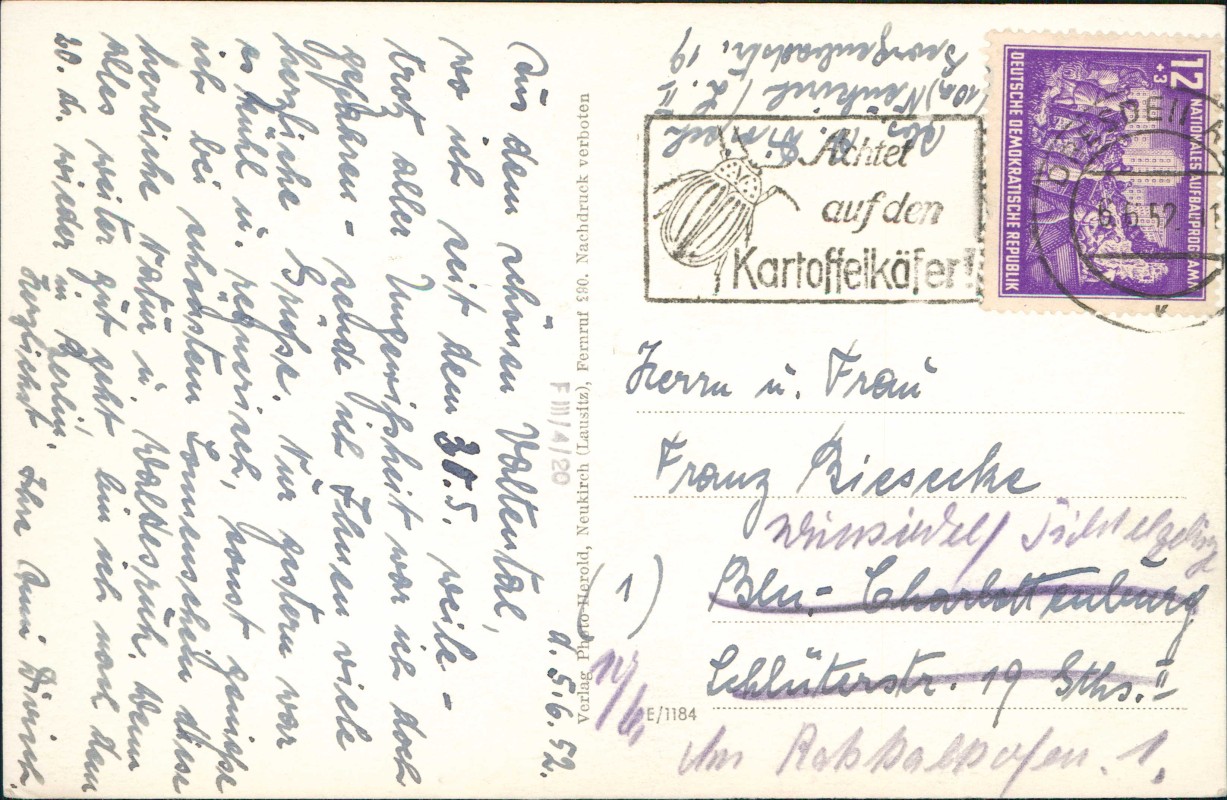 d. 5.6.52.
Aus dem schönen Valtental,
wo ich seit dem 30.5. weile –
trotz aller Ungewißheit war ich doch
gefahren – sende ich Ihnen viele
herzliche Grüße. Nur gestern war
es kühl u. regnerisch, sonst genieße
ich bei schönstem Sonnenschein diese
herrliche Natur u. Waldesruh. Wenn
alles weiter gut geht bin ich nach dem
20. ds. wieder in Berlin.
Herzlichst Ihre Anni Divisch.
Verlag Photo-Herold, Neukirch (Lausitz), Fernruf 290. Nachdruck verboten
F III/4/20
E/1184
Abs.
(10a) Neukirch/L. II
Georgenbadstr. 19
Achtet
auf den
Kartoffelkäfer!
12
+3
NATIONALES AUFBAUPROGRAMM
DEUTSCHE DEMOKRATISCHE REPUBLIK
6.52
Herrn u. Frau
Franz Biesecke
Wunsiedel/Fichtelgebirge
(1) Bln.-Charlottenburg
Schlüterstr. 19 Gths. II
Am 1.